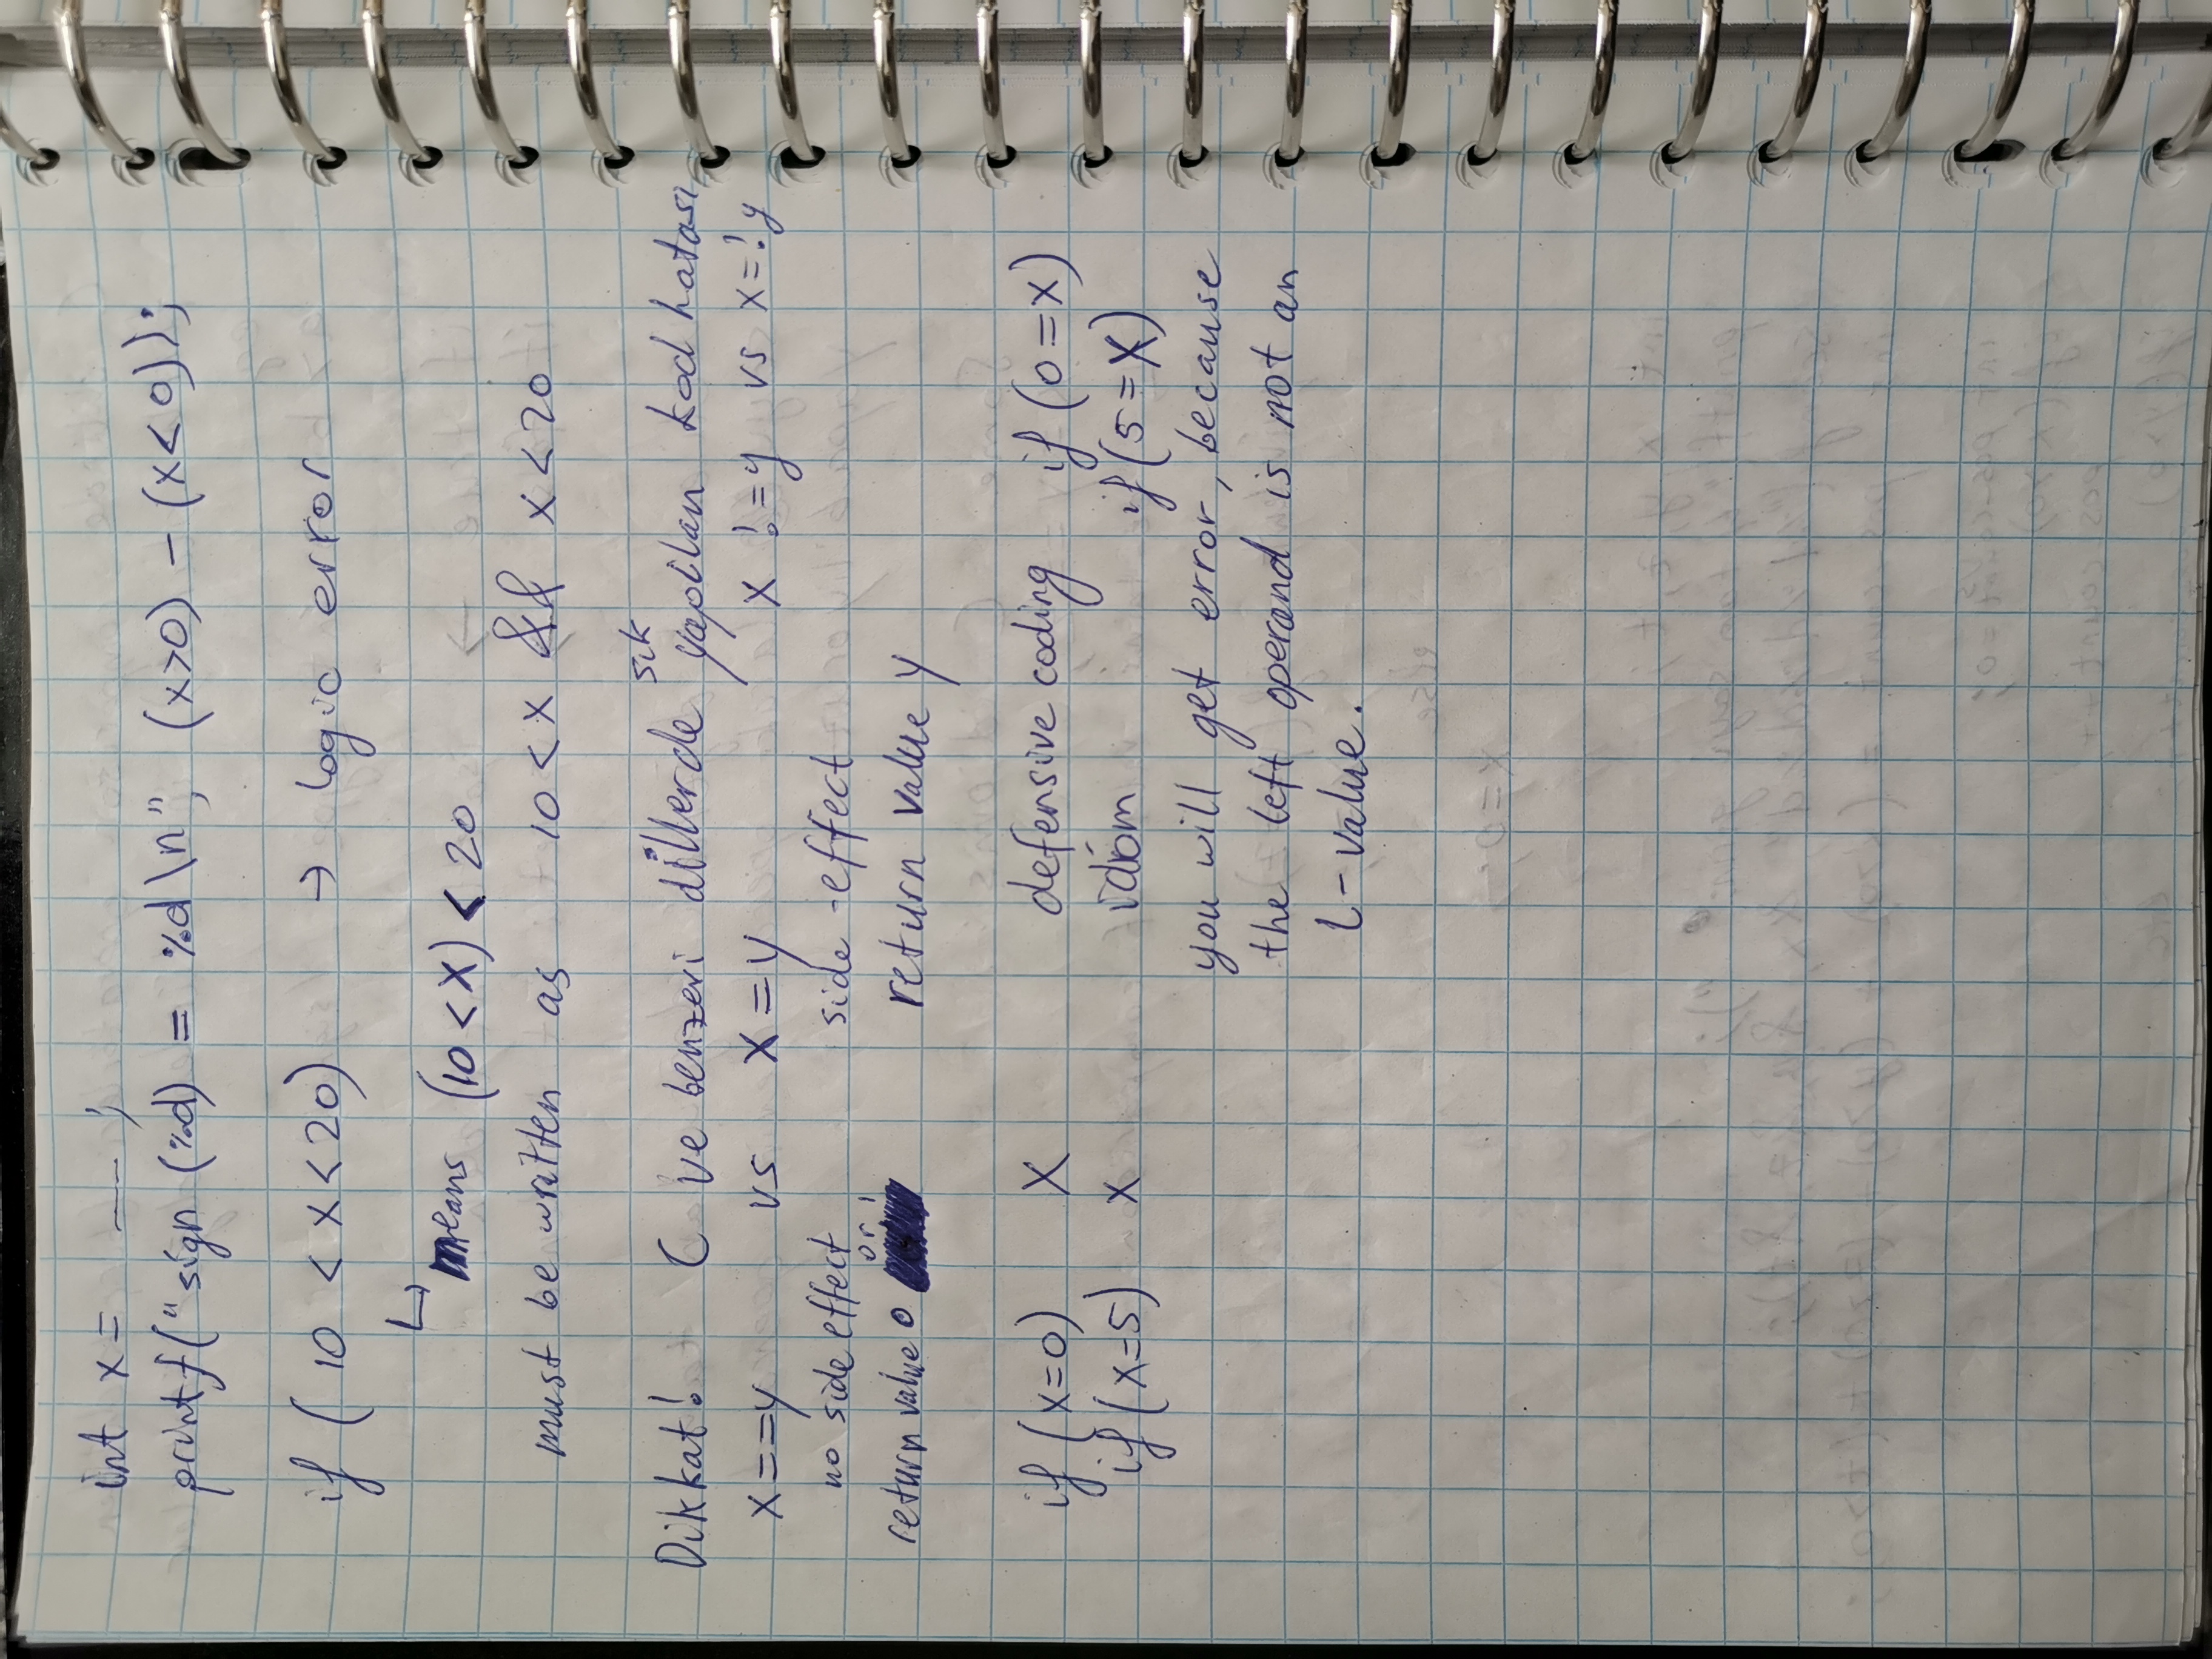 int x = — ;
printf("sign (%d) = %d \n", (x>0) - (x<0));
if ( 10 < x < 20) → logic error
↳ means (10 < x) < 20
must be written as 10 < x && x < 20
Dikkat! C ve benzeri dillerde sık yapılan kod hatası
x==y vs x=y x != y vs x=!y
no side effect side-effect
return value 0 or 1 return value y
if (x=0) X defensive coding if (0=x)
if (x=5) X idiom if (5=x)
you will get error, because
the left operand is not an
L-value.